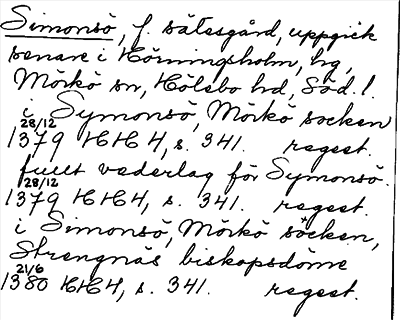 Simonsö, f. sätesgård, uppgick
senare i Hörningsholm, hg,
Mörkö sn, Hölebo hd, Söd. l.
i Symonsö, Mörkö socken
28/12
1379 HH 4, s. 341. regest.
fullt vederlag för Symonsö.
28/12
1379 HH 4, s. 341. regest.
i Simonsö, Mörkö socken,
Strengnäs biskopsdöme
21/6
1380 HH 4, s. 341. regest.